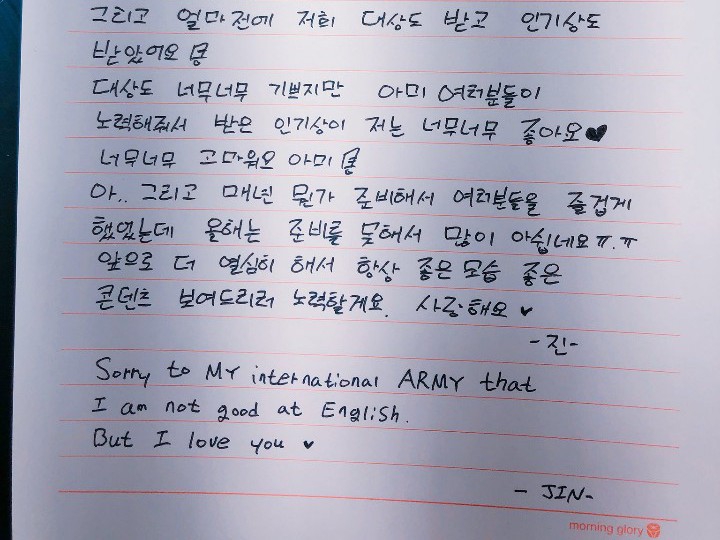 그리고 얼마전에 저희 대상도 받고 인기상도
받았어요
대상도 너무너무 기쁘지만 아미 여러분들이
노력해줘서 받은 인기상이 저는 너무너무 좋아요♥
너무너무 고마워요 아미
아.. 그리고 매년 뭔가 준비해서 여러분들을 즐겁게
했었는데 올해는 준비를 못해서 많이 아쉽네요ㅠ.ㅠ
앞으로 더 열심히 해서 항상 좋은 모습 좋은
콘텐츠 보여드리려 노력할게요. 사랑해요 ♥
-진-
Sorry to MY international ARMY that
I am not good at English.
But I love you ♥
- JIN-
morning glory